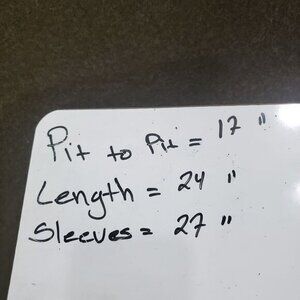 Pit to Pit = 17 "
Length = 24 "
Sleeves = 27 "